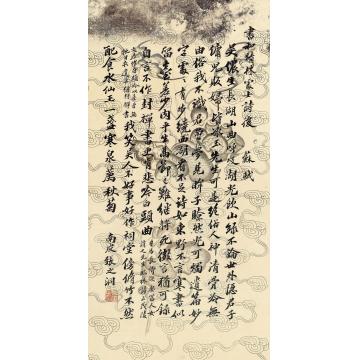 書和靖林處士詩後 蘇軾
吳儂生長湖山曲呼吸湖光飲山綠不論世外隱君子
傭兒販婦皆冰玉先生可是絕俗人神清骨冷無
由俗我不識君曾夢見眸子瞭然光可燭遺篇妙
字處處有步繞西湖看不足詩如東野不言寒書似
留臺差少肉平生高節已難繼將死微言猶可錄
自言不作封禪書更肯悲吟白頭曲
我笑吳人不好事好作祠堂傍脩竹不然
配食水仙王一盞寒泉薦秋菊
南皮張之洞